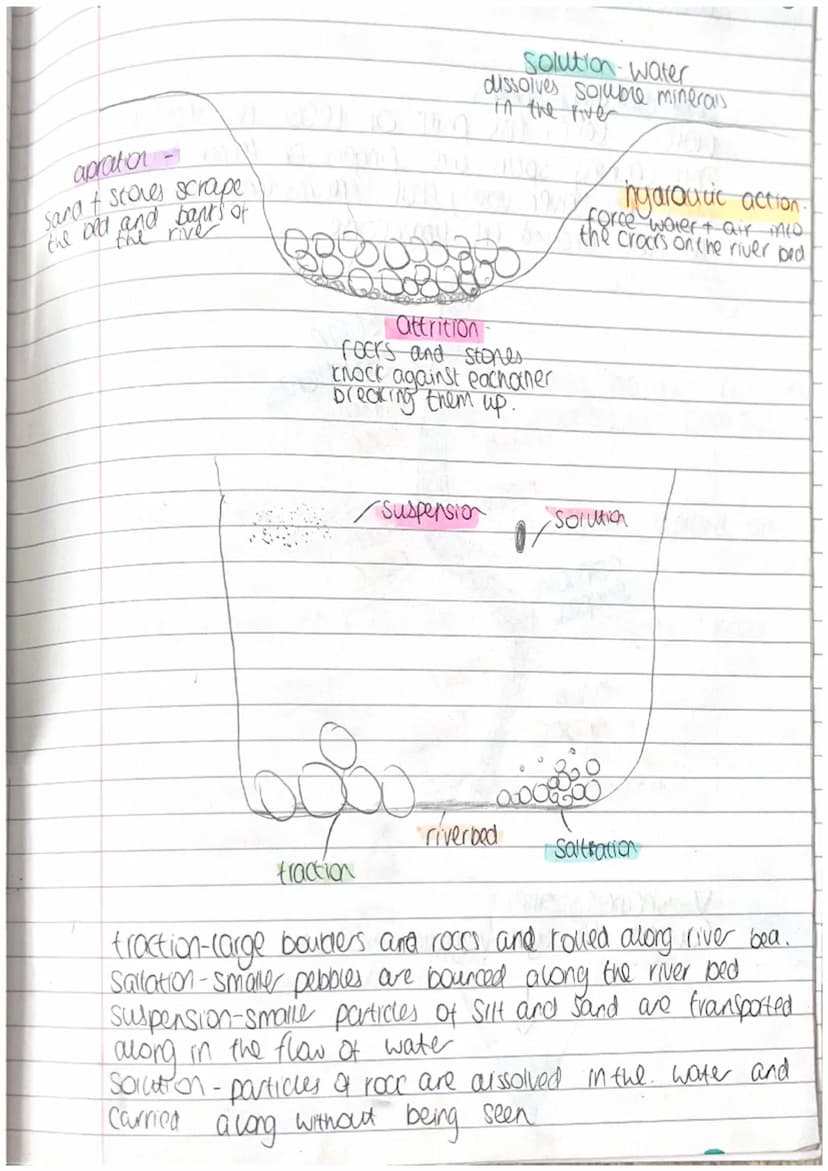 solution - water
dissolves soluble minerals
in the river
abration -
sand + stones scrape
the bed and banks of
the river
hydroulic action -
force water + air into
the cracks on the river bed
attrition -
rocks and stones
knock against eachother
breaking them up.
suspension
solution
riverbed
saltration
traction
traction - large boulders and rocks and rolled along river bed.
saltation - smaller pebbles are bounced along the river bed
suspension - smaller particles of silt and sand are transported
along in the flow of water
solution - particles of rock are dissolved in the water and
carried along without being seen